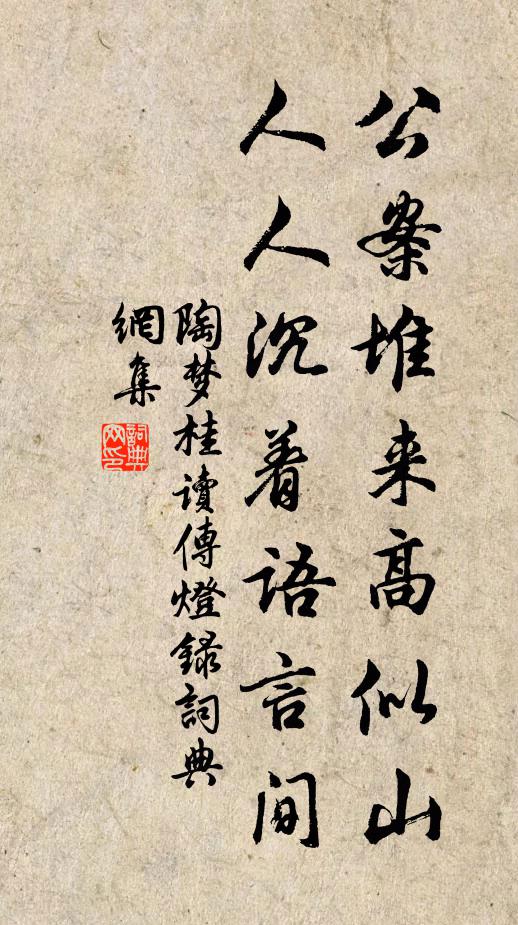 公案堆来高似山
人人沉着语言间
陶梦桂读傳燈録詞典
網集
詞典网印